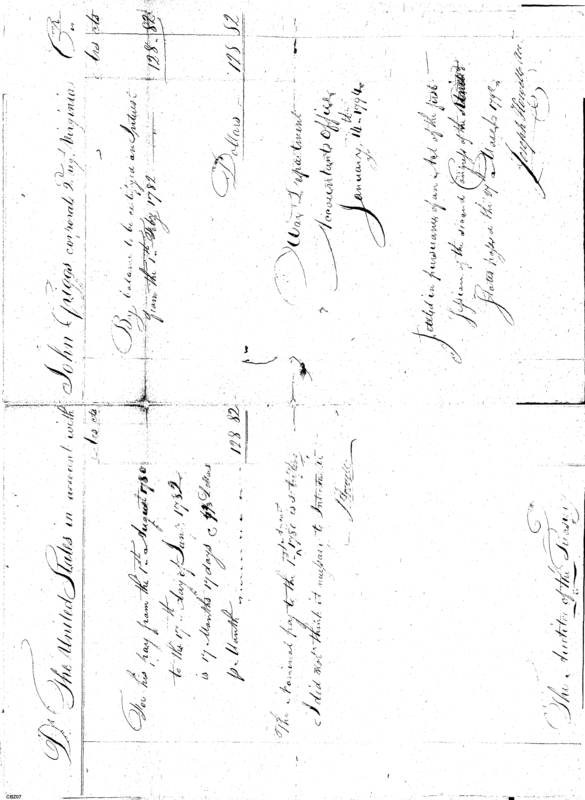 Dr The United States in account with John Griggs corporal 2d regt. Virginia Cr
dols cts
For his pay from the 1st August 1780
to the 17th day of Jany 1782
is 17 Months 17 days @ Dollars
pr Month 128 82
The Nominal pay to the 1st 1780 is
I did not think it necessary to
J Howell
The Auditor of the Treasury
Dols cts
By balance to be certified on Interest
from the 1782 128.82
Dollars 128 82
War Department
Accountants Office
January 14th 1794
Settled in pursuance of an Act of the first
Session of the second Congress of the United
States passed the 27th March 1792
Joseph Howell
CBZ07